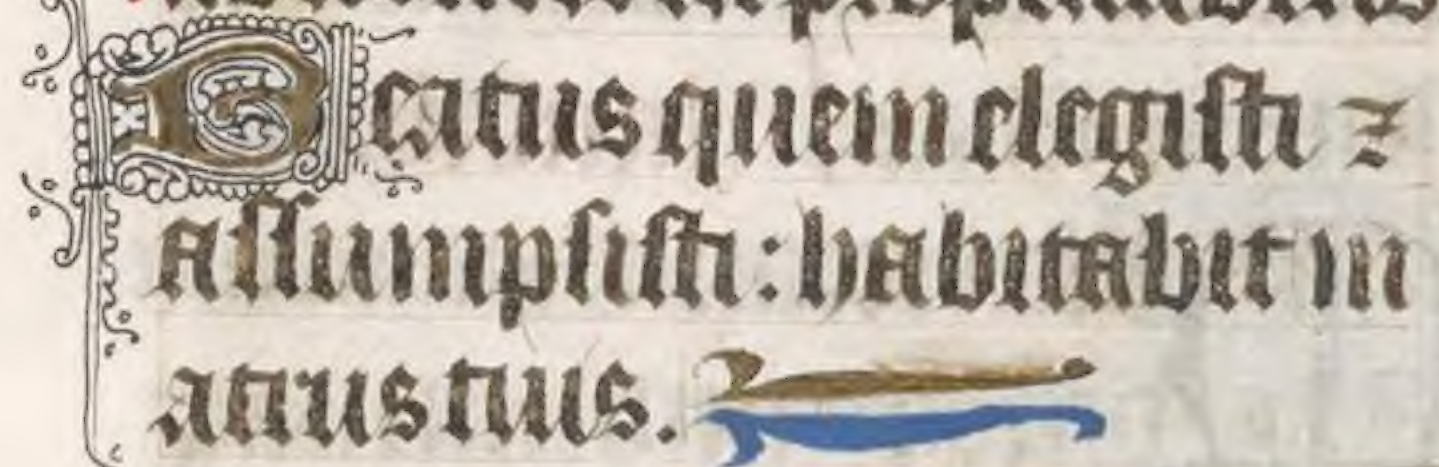 Beatus quem elegisti ⁊
assumpsisti : habitabit in
atriis tuis.